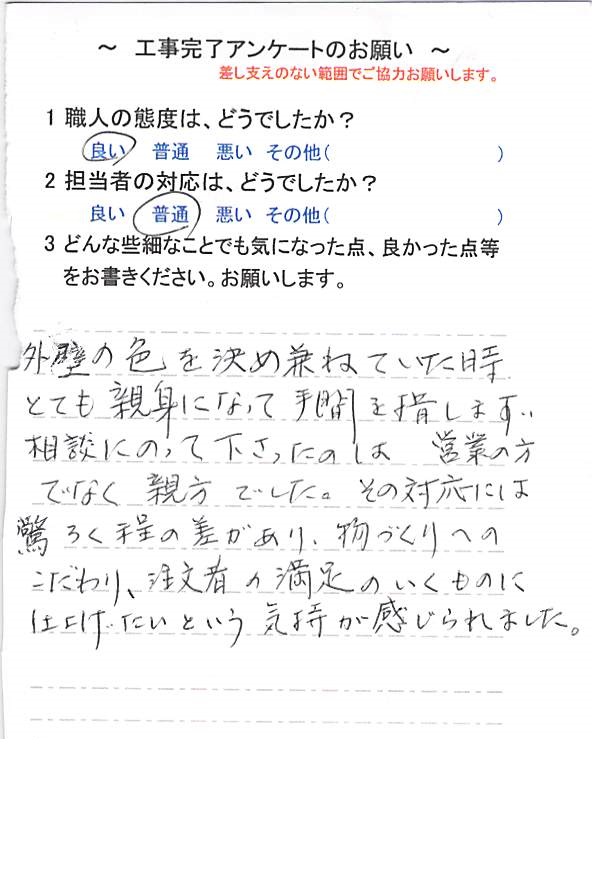 ～ 工事完了アンケートのお願い ～
差し支えのない範囲でご協力お願いします。
1 職人の態度は、どうでしたか？
良い 普通 悪い その他( )
2 担当者の対応は、どうでしたか？
良い 普通 悪い その他( )
3 どんな些細なことでも気になった点、良かった点等
をお書きください。お願いします。
外壁の色を決め兼ねていた時
とても親身になって手間を惜します、
相談にのって下さったのは 営業の方
でなく 親方でした。その対応には
驚ろく程の差があり、物づくりへの
こだわり、注文者の満足のいくものに
仕上げたいという気持が感じられました。